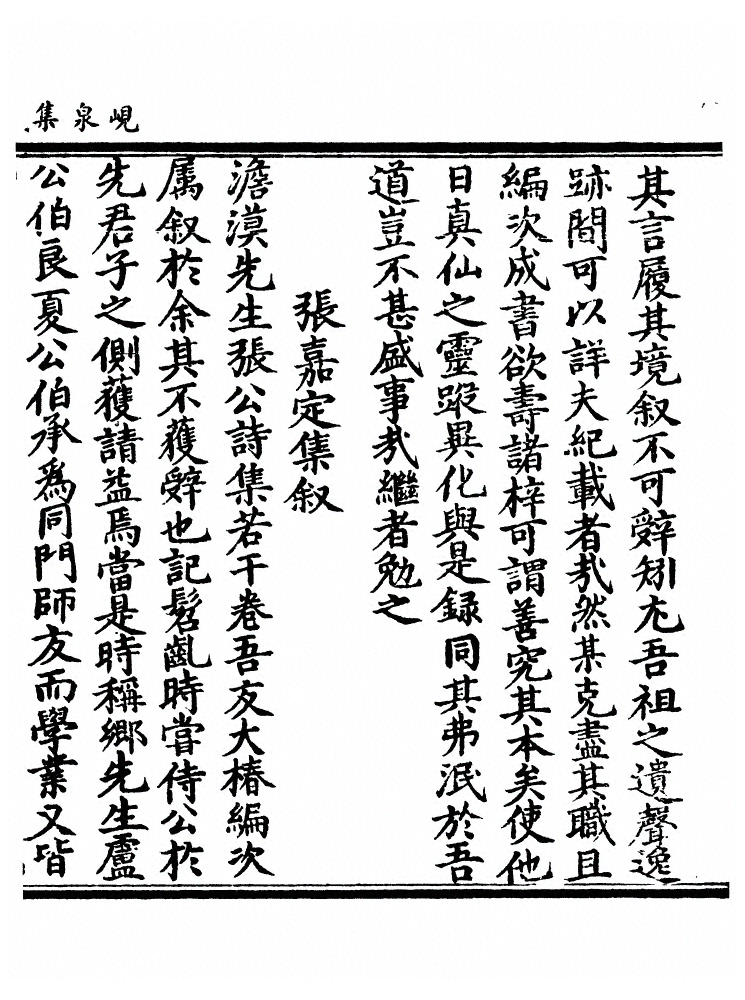 峴泉集
其言履其境叙不可辭矧尢吾祖之遺聲逸
跡間可以詳夫紀載者㢤然某克盡其職且
編次成書欲壽諸梓可謂善究其本矣使他
日真仙之靈蹤異化與是録同其弗泯於吾
道豈不甚盛事㢤繼者勉之
張嘉定集叙
澹漠先生張公詩集若干卷吾友大椿編次
属叙於余其不獲辭也記髫齔時嘗侍公於
先君子之側獲請益焉當是時稱鄉先生盧
公伯良夏公伯承爲同門師友而學業又皆